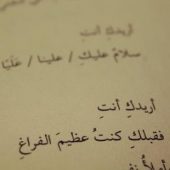 أريدكِ أنتِ
سلامٌ عليكِ / علينا / عَليَّا
أريدكِ أنتِ
فقبلكِ كنتُ عظيمَ الفراغِ